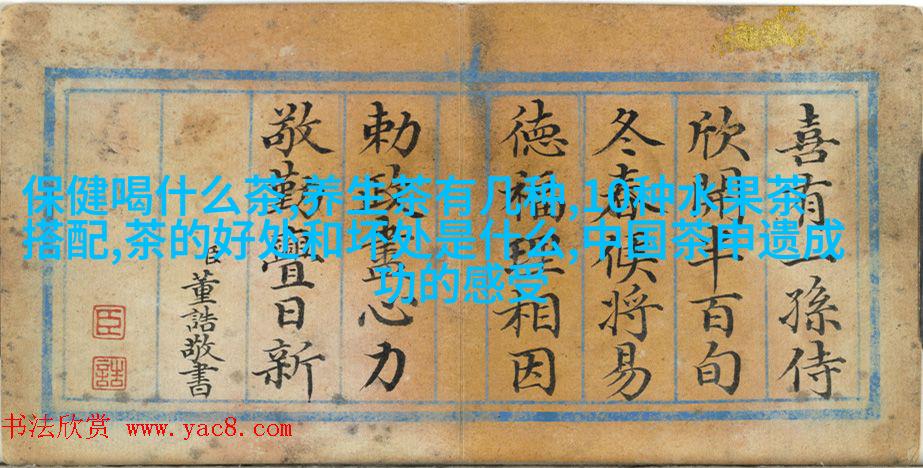 喜有一孫侍
欣開百旬
冬春候將易
德福理相因
勅政盡心力
敬勤亹日新
臣董誥敬書
臣
誥
保健喝什么茶,养生茶有几种,10种水果茶
搭配,茶的好处和坏处是什么,中国茶申遗成
功的感受
书法欣赏 www.yac8.com